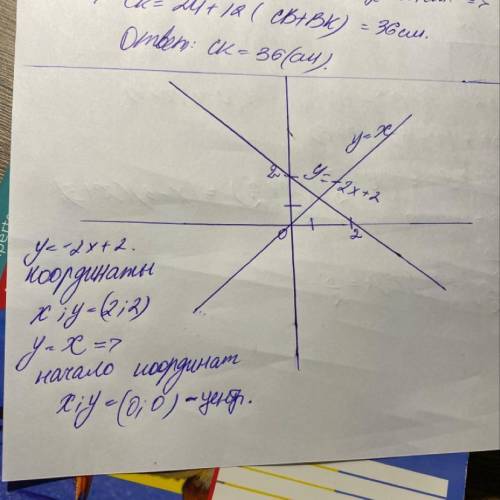 CK = 24 + 12 ( CB + BK ) = 36 см.
Ответ: CK = 36 (см).
y = x
2
y = -2x + 2
0
2
y = -2x + 2.
координаты
x ; y = (2 ; 2)
y = x =>
начало координат
x ; y = (0 ; 0) - центр.